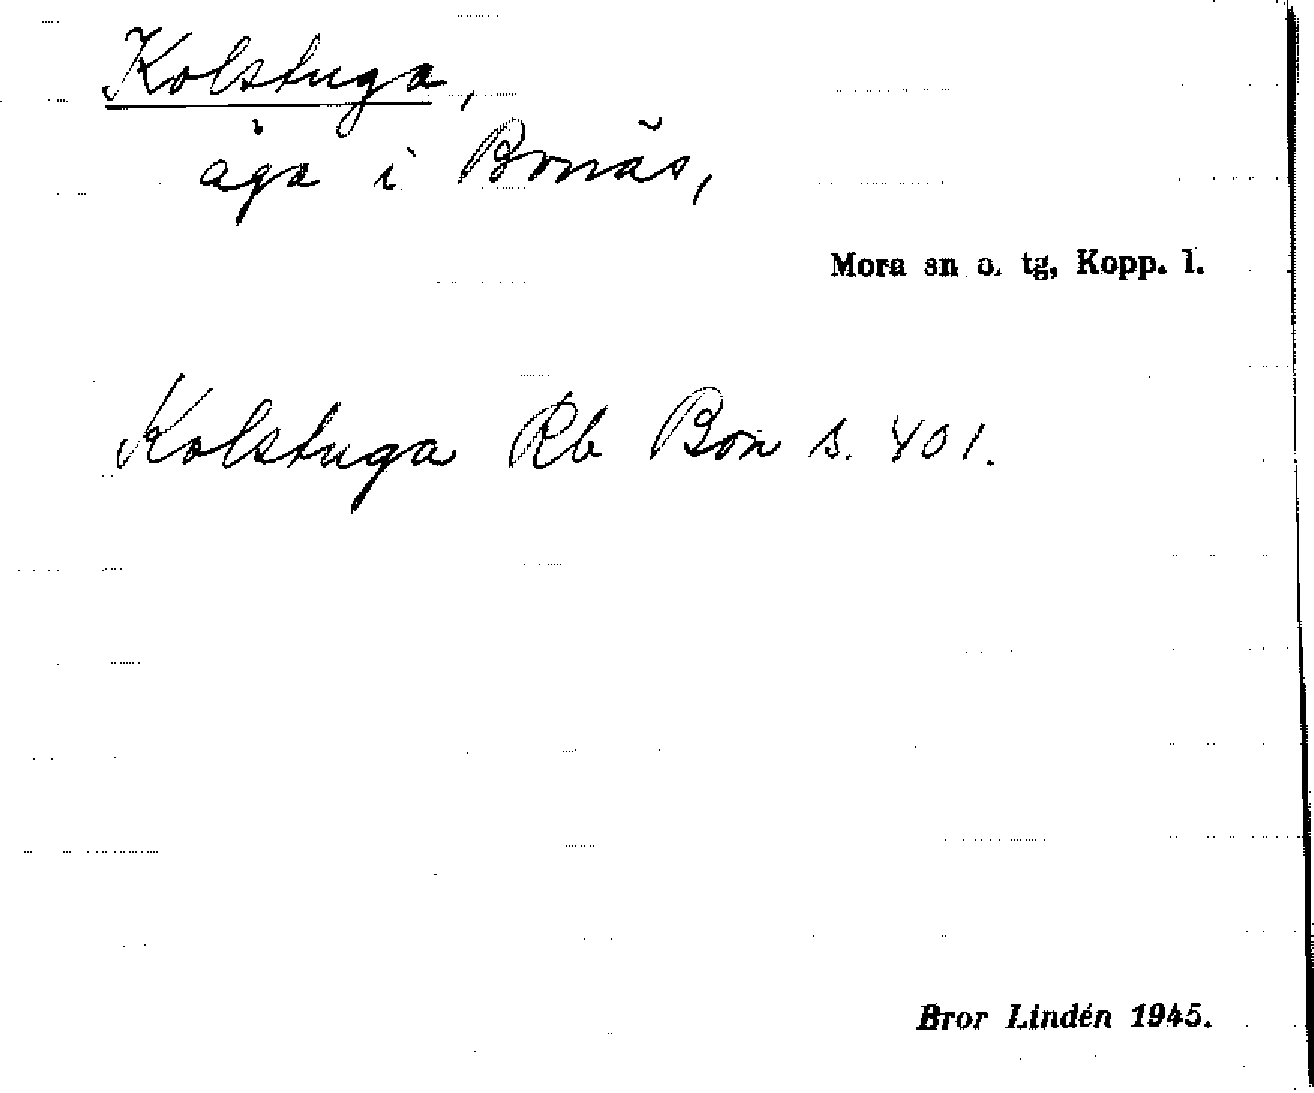 Kolstuga,
åga i Bonäs,
Mora sn o. tg, Kopp. l.
Kolstuga Rb Bon s. 401.
Bror Lindén 1945.